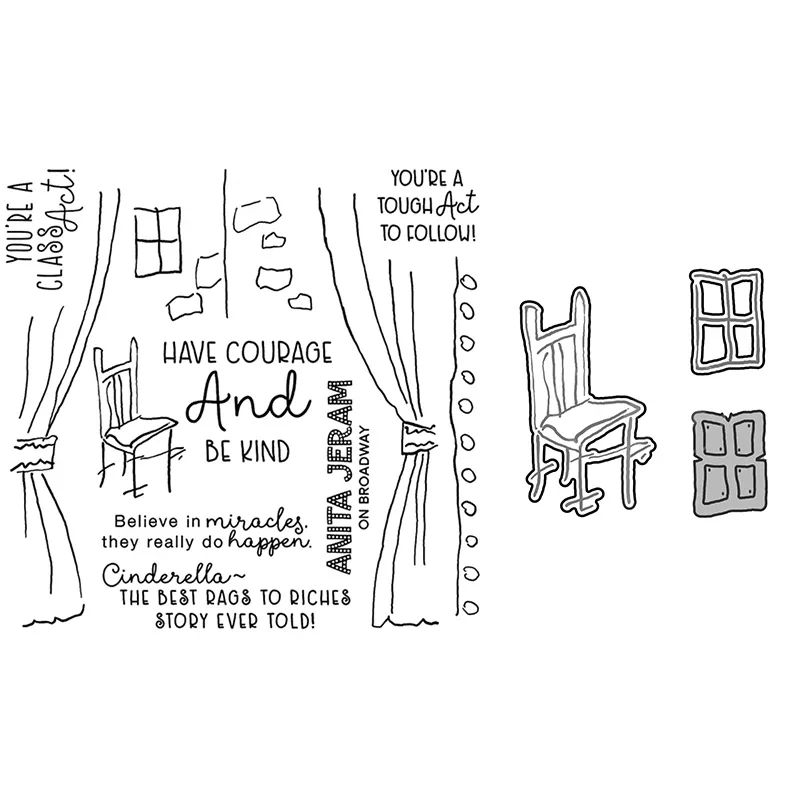 YOU'RE A
CLASS Act!
YOU'RE A
TOUGH Act
TO FOLLOW!
HAVE COURAGE
And
BE KIND
ANITA JERAM
ON BROADWAY
Believe in miracles.
they really do happen.
Cinderella~
THE BEST RAGS TO RICHES
STORY EVER TOLD!